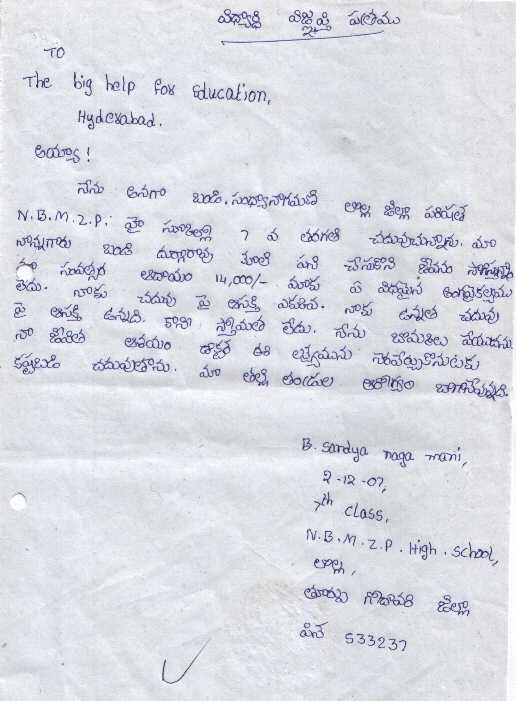 విద్యార్ధి విజ్ఞప్తి పత్రము
TO
The big help for Education,
Hyderabad.
అయ్యా !
నేను అనగా బండి. సంధ్యానాగమణి లొల్ల జిల్లా పరిషత్
N.B.M.Z.P. హై స్కూల్లో 7 వ తరగతి చదువుచున్నాను. మా
నాన్నగారు బండి దుర్గారావు కూలి పని చేసుకొని జీవనం
మా సంవత్సర ఆదాయం 14,000/- మాకు ఏ విధమైన
లేదు. నాకు చదువు పై ఆసక్తి ఎక్కువ. నాకు ఉన్నత చదువు
పై ఆసక్తి ఉన్నది. కాని స్తోమత లేదు. నేను
నా జీవిత ఆశయం డాక్టర్ ఈ లక్ష్యమును నెరవేర్చుకొనుటకు
కష్టపడి చదువుతాను. మా తల్లి తండ్రుల ఆరోగ్యం బాగానేవున్నది.
B. sandya naga mani,
2-12-07,
7th class,
N.B.M.Z.P. High. school,
లొల్ల,
తూర్పు గోదావరి జిల్లా
పిన్ 533237